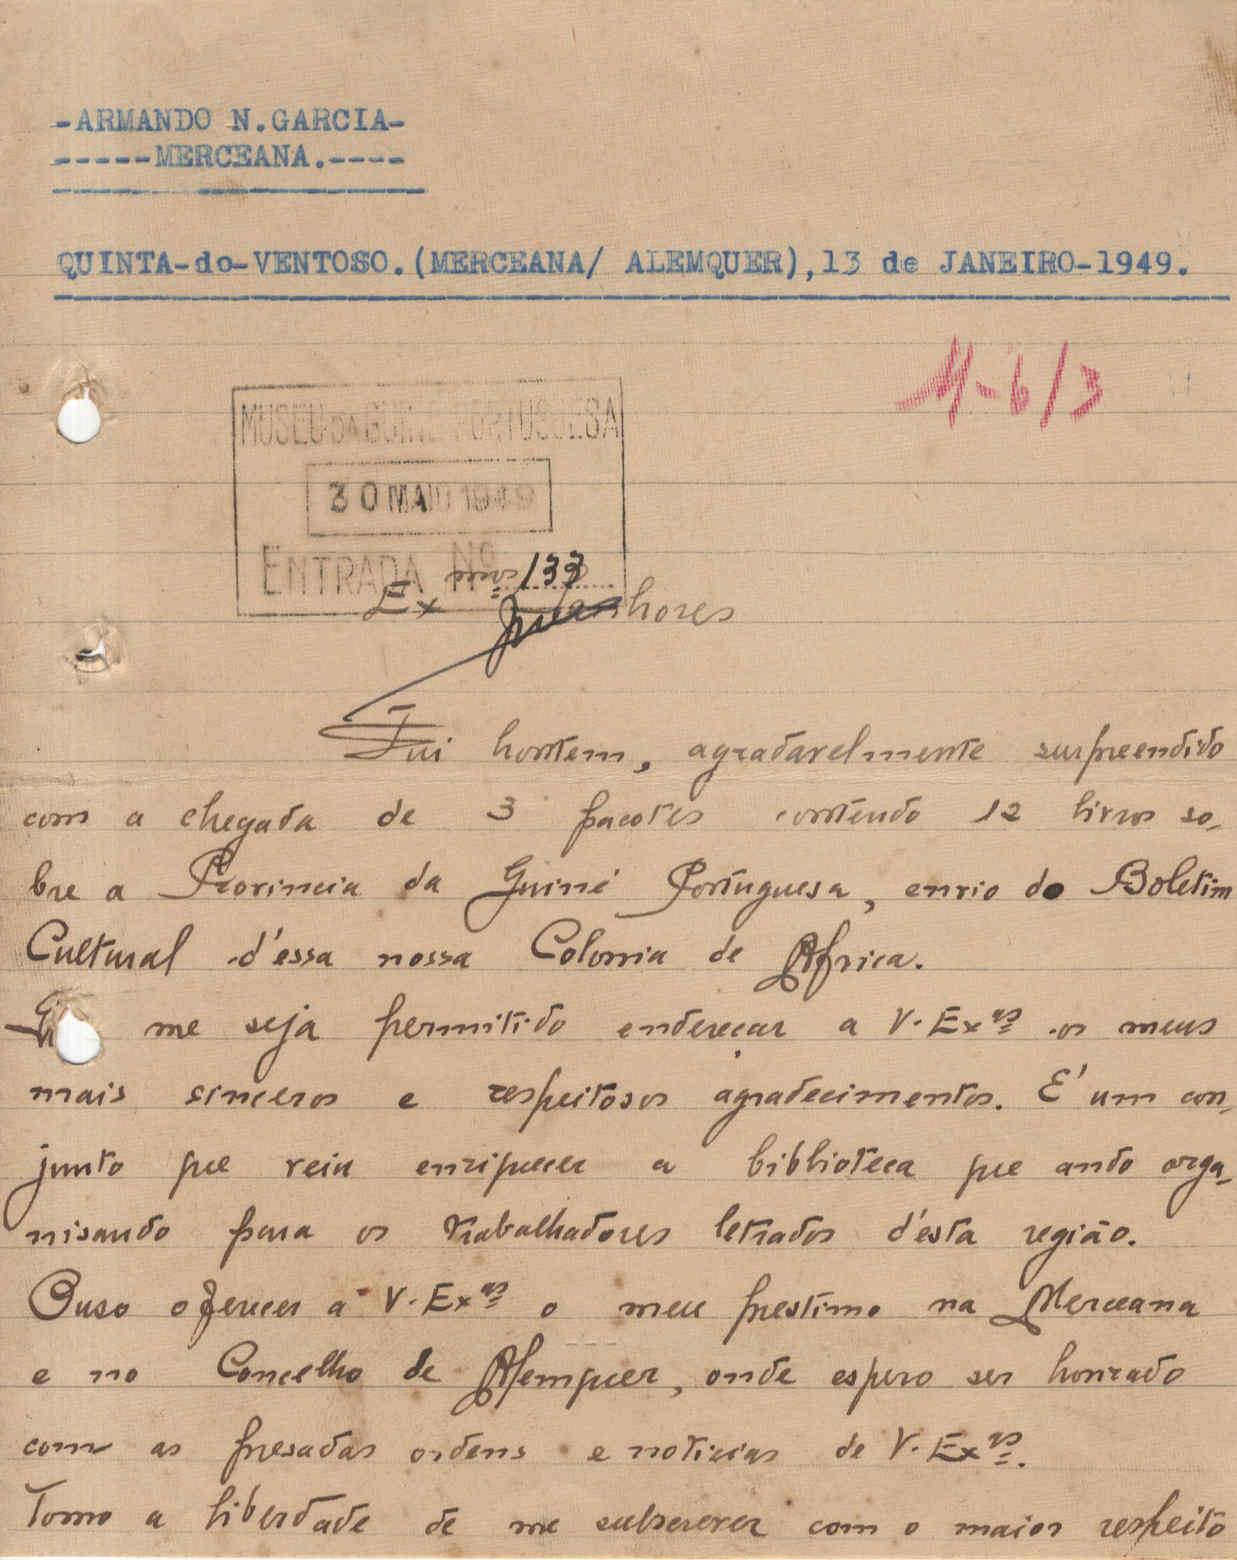 -ARMANDO N.GARCIA-
-----MERCEANA.----
QUINTA-do-VENTOSO.(MERCEANA/ ALEMQUER),13 de JANEIRO-1949.
MUSEU DA GUINÉ PORTUGUESA
30 MAIO 1949
ENTRADA Nº 133
Exmos Senhores
Fui hontem, agradavelmente surpreendido
com a chegada de 3 pacotes contendo 12 livros so-
bre a Provincia da Guiné Portuguesa, envio do Boletim
Cultural d'essa nossa Colonia de Africa.
me seja permitido endereçar a V. Exas os meus
mais sinceros e respeitosos agradecimentos. E' um con-
junto que veiu enriquecer a biblioteca que ando orga-
nisando para os trabalhadores letrados d'esta região.
Ouso oferecer a V. Exas o meu prestimo na Merceana
e no Concelho de Alemquer, onde espero ser honrado
com as presadas ordens e noticias de V. Exas.
Tomo a liberdade de me subscrever com o maior respeito